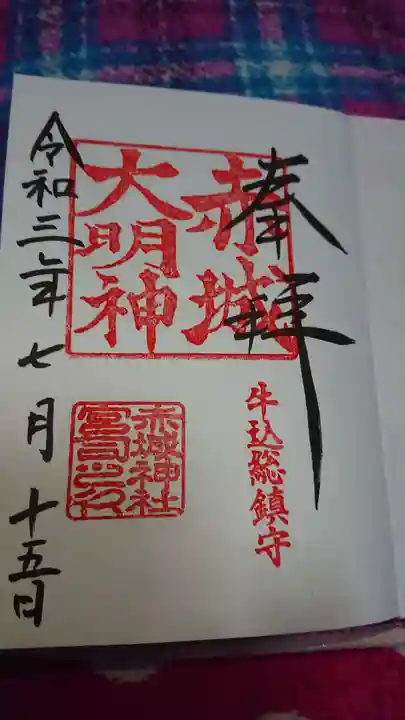 奉拝
牛込総鎮守
赤城
大明神
赤城神社
宮司之印
令和三年七月十五日